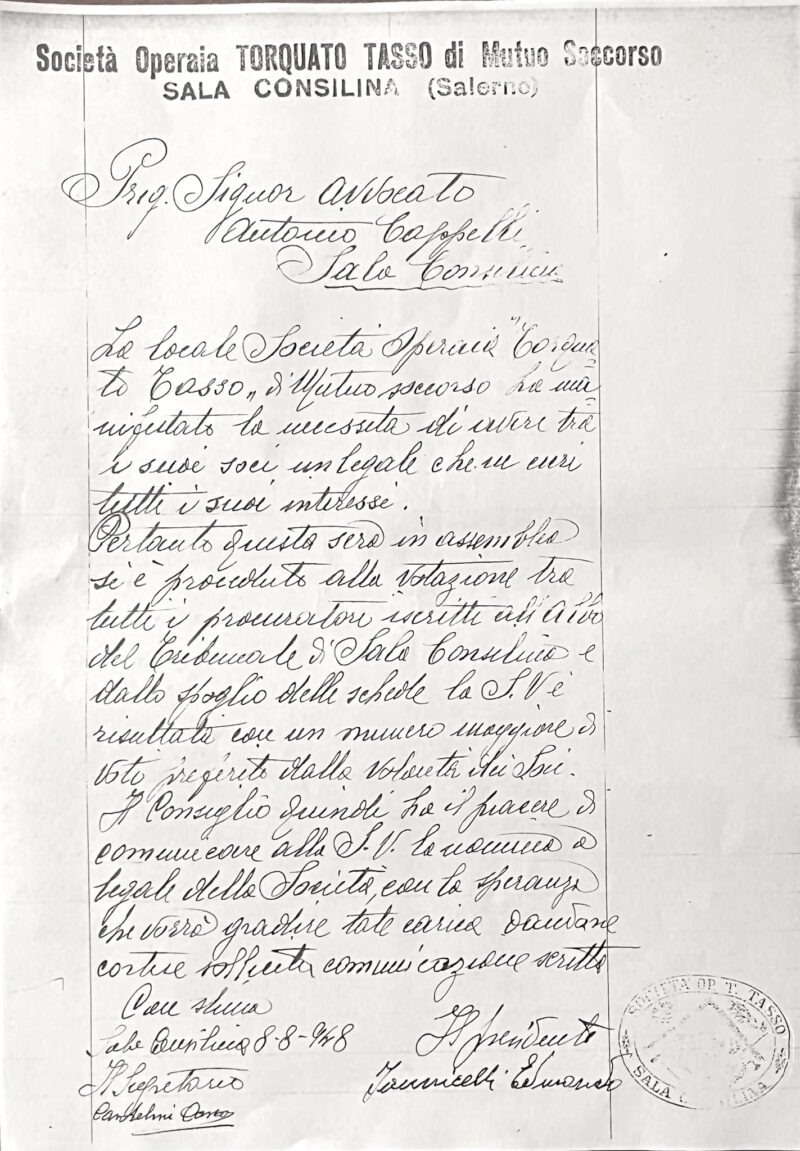 Società Operaia TORQUATO TASSO di Mutuo Soccorso
SALA CONSILINA (Salerno)
Preg. Signor Avvocato
Antonio Cappelli
Sala Consilina
La locale Società Operaia "Torqua=
to Tasso„ di Mutuo soccorso ha ma=
nifestato la necessità di avere tra
i suoi soci un legale che ne curi
tutti i suoi interessi.
Pertanto questa sera in assemblea
si è proceduto alla votazione tra
tutti i procuratori iscritti all'Albo
del Tribunale di Sala Consilina e
dallo spoglio delle schede la S.V è
risultata con un numero maggiore di
voto preferito dalla volontà dei Soci.
Il Consiglio quindi ha il piacere di
comunicare alla S.V. la nomina a
legale della Società, con la speranza
che vorrà gradire tale carica dandone
cortese sollecita comunicazione scritta
Con stima
Sala Consilina 8-8-948
Il presidente
Il Segretario
Iannicelli Edmondo
SOCIETÀ OP. T. TASSO
SALA CONSILINA